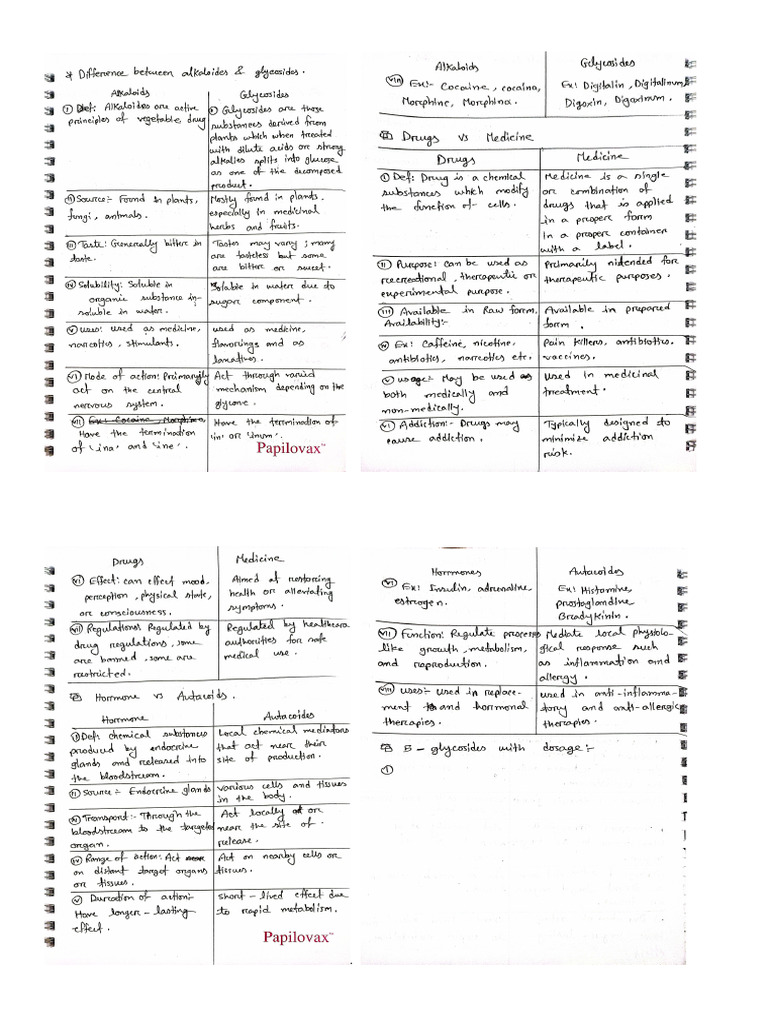 * Difference between alkaloides & glycosides.
Alkaloids
(i) Def: Alkaloides are active
principles of vegetable drug
(ii) Source:- Found in plants,
fungi, animals.
(iii) Taste: Generally bitter in
taste.
(iv) Solubility: Soluble in
organic substance in-
soluble in water.
(v) uses: used as medicine,
narcotics, stimulants.
(vi) Mode of action: Primarily
act on the central
nervous system.
(vii) Ex: Cocaine, Morphine,
Have the termination
of 'ina' and 'ine'.
Glycosides
Glycosides are those
substances derived from
plants which when treated
with dilute acids or strong
alkalies splits into glucose
as one of the decomposed
product.
Mostly found in plants.
especially in medicinal
herbs and fruits.
Tastes may vary; many
are tasteless but some
are bitter or sweet.
Soluble in water due to
sugar component.
used as medicine,
flavorings and as
laxatives.
Act through varied
mechanism depending on the
glycone.
Have the termination of
'in' or 'inum'.
Papilovax™
Alkaloids
(viii) Ex:- Cocaine, cocaina,
Morphine, Morphina.
Gelycosides
Ex: Digitalin, Digitalinum,
Digoxin, Digoxinum.
Drugs vs Medicine
Drugs
(i) Def: Drug is a chemical
substances which modify
the function of cells.
(ii) Purpose: can be used as
recreational, therapeutic or
experimental purpose.
(iii) Available in Raw form,
Availability:-
(iv) Ex: Caffeine, nicotine,
antibiotics, narcotics etc.
(v) usage:- May be used as
both medically and
non-medically.
(vi) Addiction:- Drugs may
cause addiction.
Medicine
Medicine is a single
or combination of
drugs that is applied
in a proper form
in a proper container
with a label.
Primarily nidended for
therapeutic purposes.
Available in prepared
form.
Pain killers, antibiotics.
vaccines.
Used in medicinal
treatment.
Typically designed to
minimize addiction
risk.
Drugs
(vi) Effect: can effect mood,
perception, physical state,
or consciousness.
(vii) Regulations: Regulated by
drug regulations, some
are banned, some are
restricted.
Medicine
Aimed at restoring
health or alleviating
symptoms.
Regulated by healthcare
authorities for safe
medical use.
Hormone vs Autacoids.
Hormone
(i) Def: chemical substances
produced by endocrine
glands and released into
the bloodstream.
(ii) Source:- Endocrine glands
(iv) Transport:- Through the
bloodstream to the targeted
organ.
(iv) Range of action: Act near
on distant target organs
or tissues.
(v) Duration of action:-
Have longer-lasting
effect.
Autacoides
Local chemical mediators
that act near their
site of production.
various cells and tissues
in the body.
Act locally at or
near the site of
release.
Act on nearby cells or
tissues.
short-lived effect due
to rapid metabolism.
Papilovax™
Hormones
(vi) Ex: Insulin, adrenaline,
estrogen.
(vii) Function: Regulate process
like growth, metabolism,
and reproduction.
(viii) uses:- used in replace-
ment and hormonal
therapies.
Autacoides
Ex: Histamine,
prostoglandine,
Bradykinin.
Mediate local physiolo-
gical response such
as inflammation and
allergy.
used in anti-inflamma-
tory and anti-allergic
therapies.
5- glycosides with dosage:-
(i)